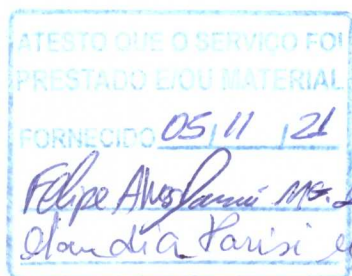 ATESTO QUE O SERVIÇO FOI
PRESTADO E/OU MATERIAL
FORNECIDO 05/11/21
Felipe Alves
Claudia Parisi